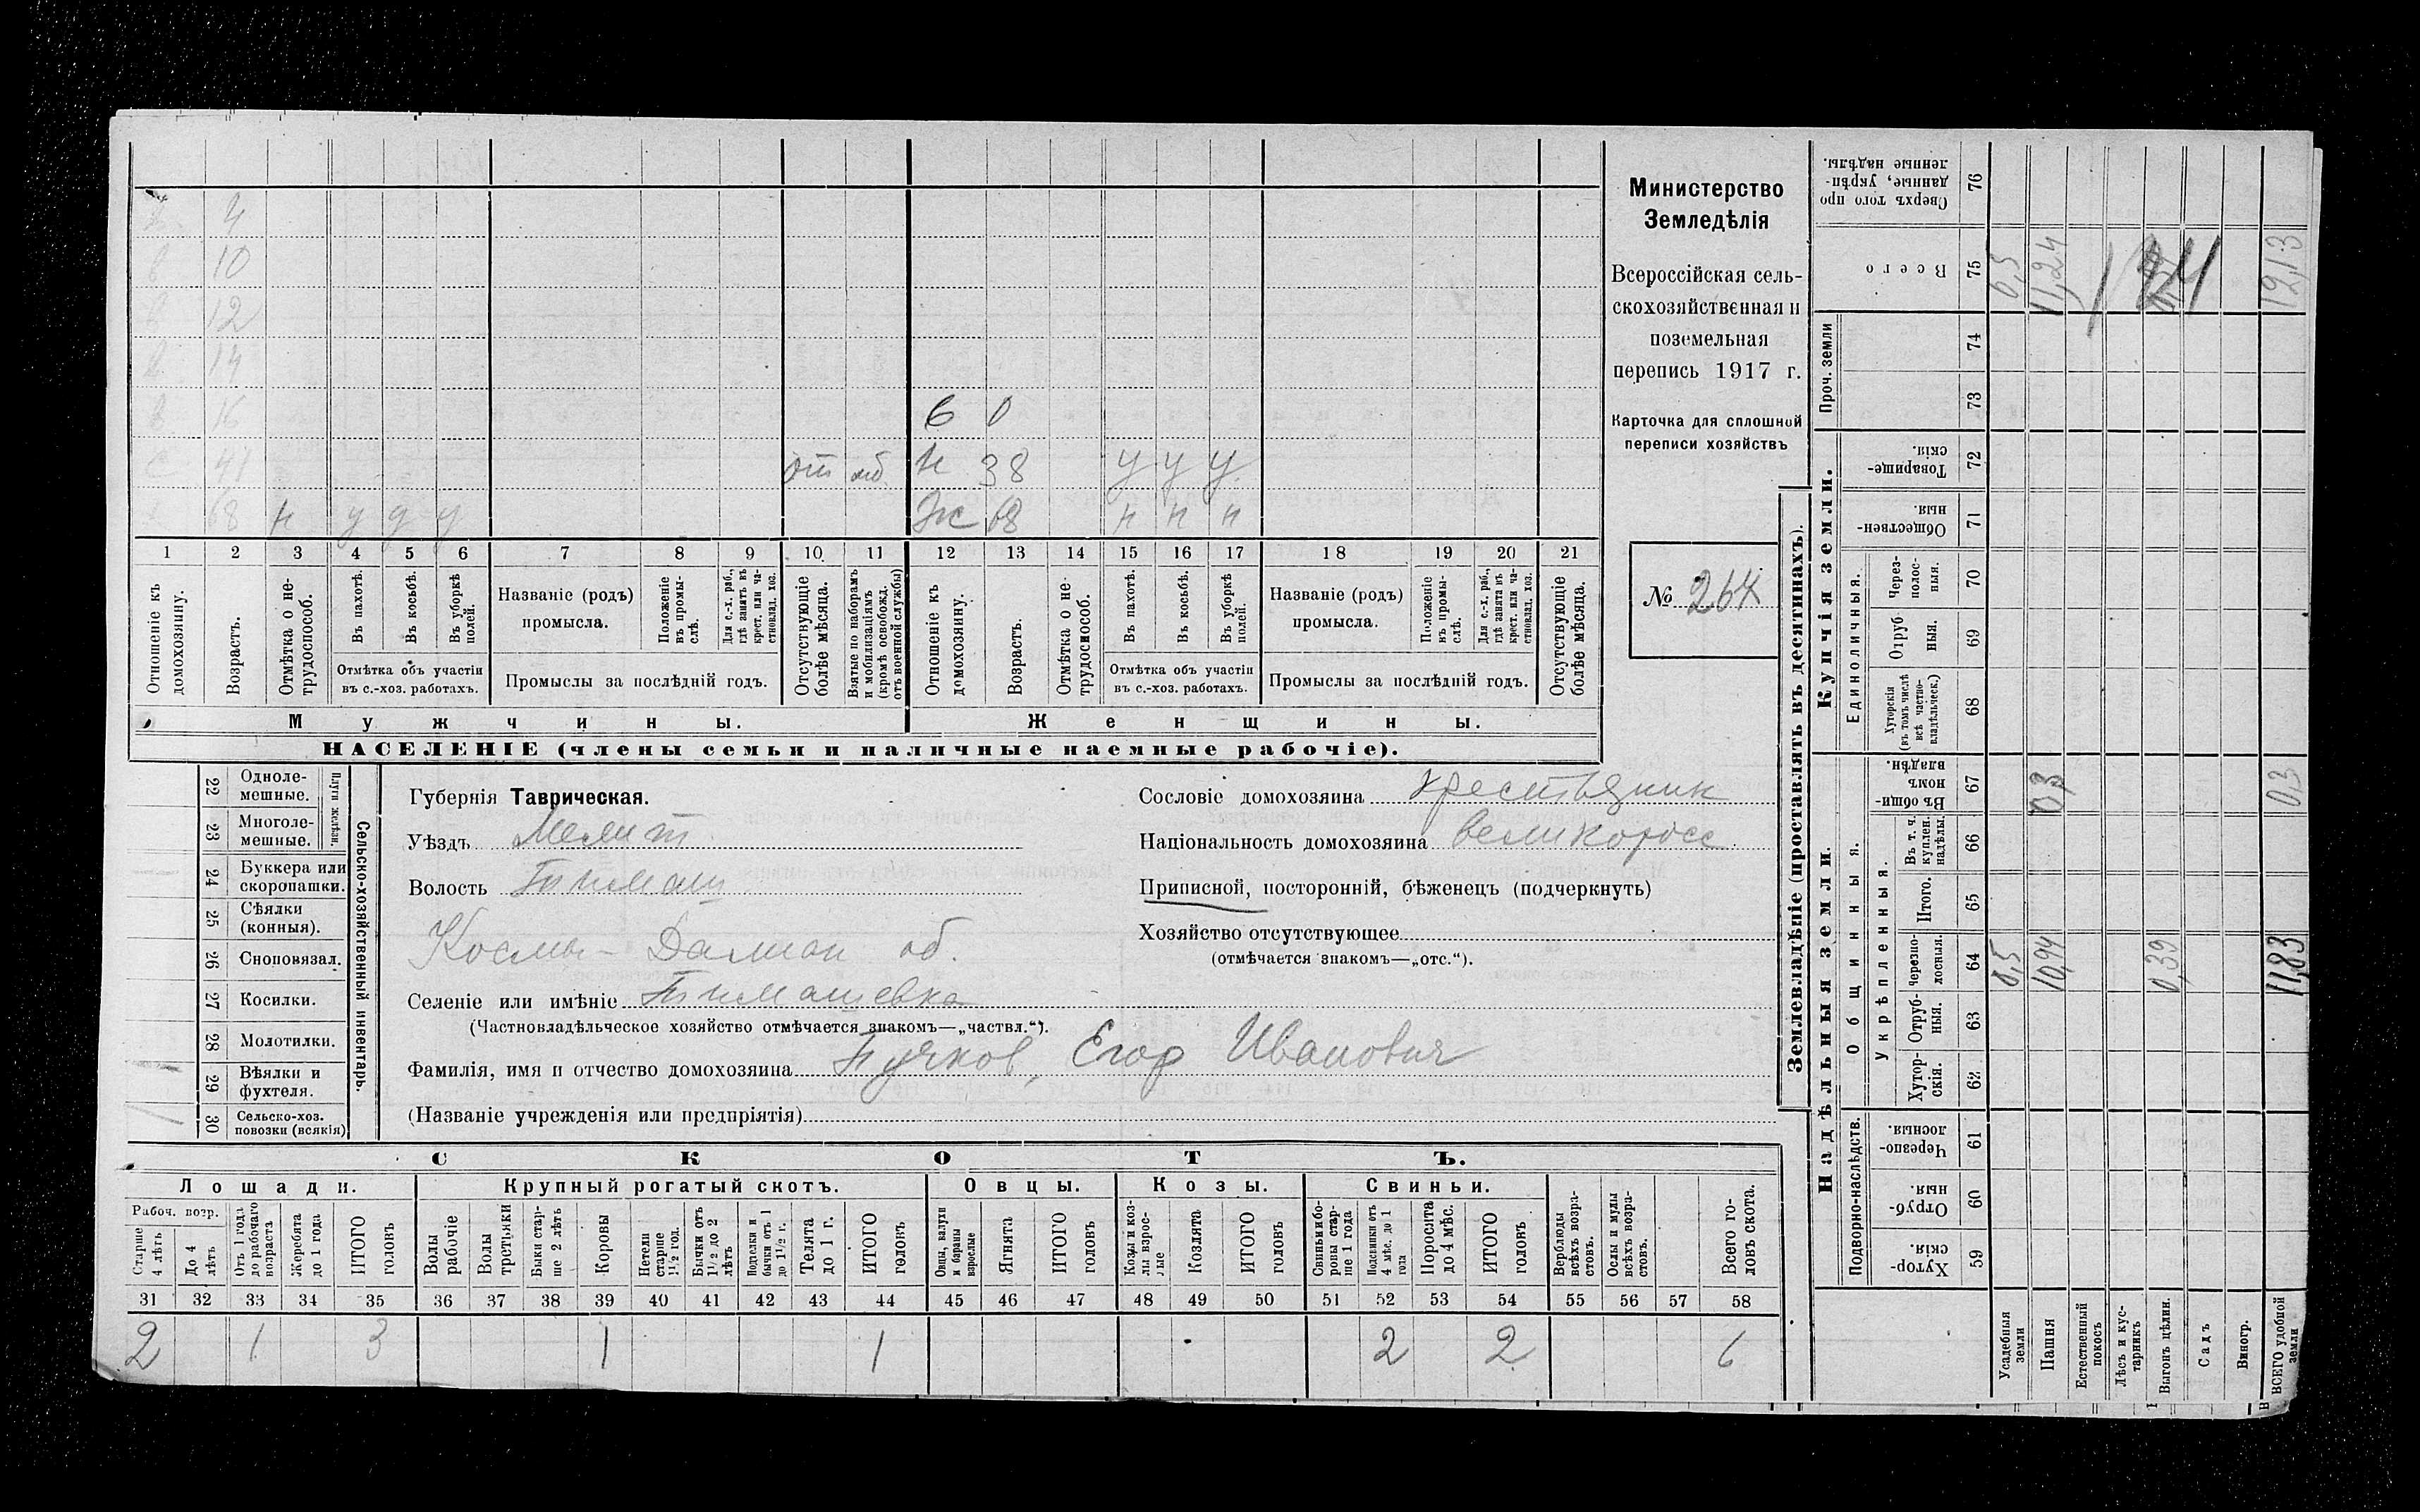 4
10
12
14
В 16 6 0
С 41 от моб. Н 38 у у у
68 н у у у Ж 68 н н н
1 2 3 4 5 6 7 8 9 10 11 12 13 14 15 16 17 18 19 20 21
Отношеніе къ домохозяину.
Возрастъ.
Отмѣтка о нетрудоспособ.
Въ пахотѣ.
Въ косьбѣ.
Въ уборкѣ полей.
Отмѣтка объ участіи
въ с.-хоз. работахъ.
Названіе (родъ)
промысла.
Положеніе въ промыслѣ.
Для с.-х. раб., гдѣ занятъ въ крест. или частновлад. хоз.
Промыслы за послѣдній годъ.
Отсутствующіе болѣе мѣсяца.
Взятые по наборамъ и мобилизаціямъ (кромѣ освобожд. отъ военной службы)
Отношеніе къ домохозяину.
Возрастъ.
Отмѣтка о нетрудоспособ.
Въ пахотѣ.
Въ косьбѣ.
Въ уборкѣ полей.
Отмѣтка объ участіи
въ с.-хоз. работахъ.
Названіе (родъ)
промысла.
Положеніе въ промыслѣ.
Для с.-х. раб., гдѣ занята въ крест. или частновлад. хоз.
Промыслы за послѣдній годъ.
Отсутствующіе болѣе мѣсяца.
Мужчины.
Женщины.
НАСЕЛЕНІЕ (члены семьи и наличные наемные рабочіе).
Министерство
Земледѣлія
Всероссійская сель-
скохозяйственная и
поземельная
перепись 1917 г.
Карточка для сплошной
переписи хозяйствъ
№ 264
22 Одноле-
мешные.
23 Многоле-
мешные.
Плуги желѣзн.
24 Буккера или
скоропашки.
25 Сѣялки
(конныя).
26 Сноповязал.
27 Косилки.
28 Молотилки.
29 Вѣялки и
фухтеля.
30 Сельско-хоз.
повозки (всякія)
Сельско-хозяйственный инвентарь.
Губернія Таврическая.
Уѣздъ Мелит.
Волость Тимаш
Космо-Дамиан об.
Селеніе или имѣніе Тимашевка
(Частновладѣльческое хозяйство отмѣчается знакомъ—„частвл.“).
Фамилія, имя и отчество домохозяина Пучков, Егор Иванович
(Названіе учрежденія или предпріятія)
Сословіе домохозяина крестьянин
Національность домохозяина великоросс
Приписной, посторонній, бѣженецъ (подчеркнуть)
Хозяйство отсутствующее
(отмѣчается знакомъ—„отс.“).
СКОТЪ.
Лошади.
Крупный рогатый скотъ.
Овцы.
Козы.
Свиньи.
Рабоч. возр.
Старше 4 лѣтъ
До 4 лѣтъ
Отъ 1 года до рабочаго возраста
Жеребята до 1 года
ИТОГО головъ
Волы рабочіе
Волы третьяки
Быки старше 2 лѣтъ
Коровы
Нетели старше 1½ год.
Бычки отъ 1½ до 2 лѣтъ
Подтелки и бычки отъ 1 до 1½ г.
Телята до 1 г.
ИТОГО головъ
Овцы, валухи и бараны взрослые
Ягнята
ИТОГО головъ
Козы и козлы взрослые
Козлята
ИТОГО головъ
Свиньи и боровы старше 1 года
Подсвинки отъ 4 мѣс. до 1 года
Поросята до 4 мѣс.
ИТОГО головъ
Верблюды всѣхъ возрастовъ.
Ослы и мулы всѣхъ возрастовъ.
Всего головъ скота.
31 32 33 34 35 36 37 38 39 40 41 42 43 44 45 46 47 48 49 50 51 52 53 54 55 56 57 58
2 1 3 1 1 2 2 6
Землевладѣніе (проставлять въ десятинахъ).
Надѣльныя земли.
Купчія земли.
Проч. земли
Подворно-наслѣдств.
Общинныя.
Укрѣпленныя.
Единоличныя.
Хутор-
скія. 59
Отруб-
ныя. 60
Черезпо-
лосныя. 61
Хутор-
скія. 62
Отруб-
ныя. 63
Черезпо-
лосныя. 64
Итого. 65
Въ т. ч. куплен. надѣлы. 66
Въ общинномъ владѣн. 67
Хуторскія (въ томъ числѣ всѣ частновладѣльческ.) 68
Отрубныя. 69
Через-
полос-
ныя. 70
Обществен-
ныя. 71
Товарище-
скія. 72
73
74
Всего 75
Сверхъ того проданные, укрѣпленные надѣлы. 76
Усадебныя земли 0,5 0,5
Пашня 10,94 0,3 11,24
Естественный покосъ
Лѣсъ и кустарникъ
Выгонъ цѣлин. 0,39
Садъ
Виногр.
ВСЕГО удобной земли 11,83 0,3 12,13